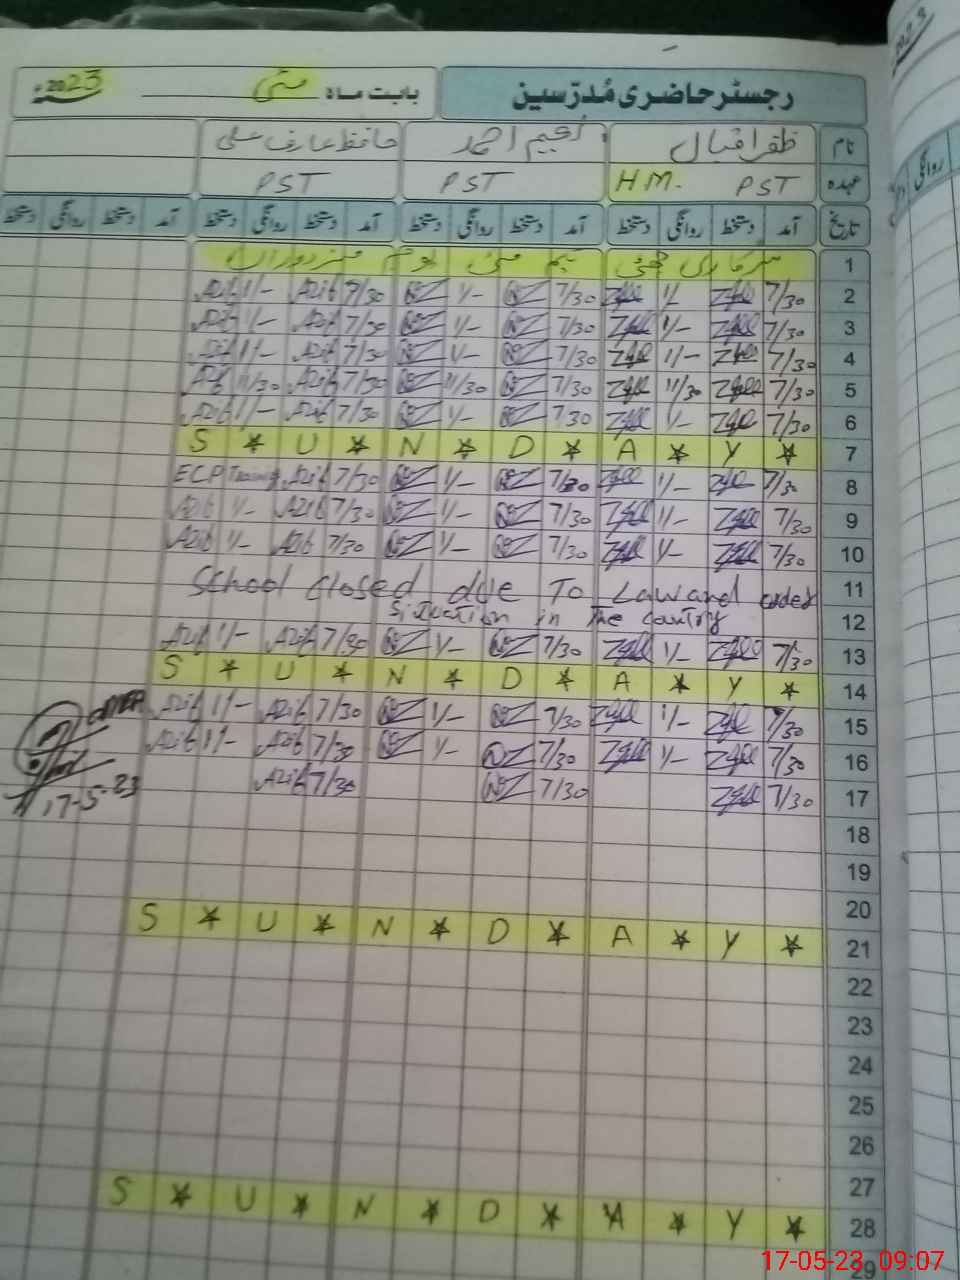 رجسٹر حاضری مُدرّسین بابت ماہ مئی 2023ء
نام ظفر اقبال نعیم احمد حافظ عارف علی
عہدہ PST H.M. PST PST
تاریخ آمد دستخط روانگی دستخط آمد دستخط روانگی دستخط آمد دستخط روانگی دستخط دستخط روانگی دستخط
1 سرکاری چھٹی یکم مئی یوم مزدوراں
2 7/30 1/- 7/30 1/- 7/30 Azib 1/- Azib
3 7/30 1/- 7/30 1/- 7/30 Azib 1/- Azib
4 7/30 1/- 7/30 1/- 7/30 Azib 1/- Azib
5 7/30 11/30 7/30 11/30 7/30 Azib 11/30 Azib
6 7/30 1/- 7 30 1/- 7/30 Azib 1/- Azib
S * U * N * D * A * Y * 7
8 7/30 1/- 7/30 1/- 7/30 Azib Training ECP
9 7/30 1/- 7/30 1/- 7/30 Azib 1/- Azib
10 7/30 1/- 7/30 1/- 7/30 Azib 1/- Azib
School closed due To Law and order 11
Situation in The country 12
13 7/30 1/- 7/30 1/- 7/30 Azib 1/- Azib
S * U * N * D * A * Y * 14
15 7/30 1/- 7/30 1/- 7/30 Azib 1/- Azib
16 7/30 1/- 7/30 1/- 7/30 Azib 1/- Azib
17 7/30 7/30 7/30 Azib
17-5-23
18
19
20
S * U * N * D * A * Y * 21
22
23
24
25
26
27
S * U * N * D * A * Y * 28
29
17-05-23, 09:07
2023
روانگی